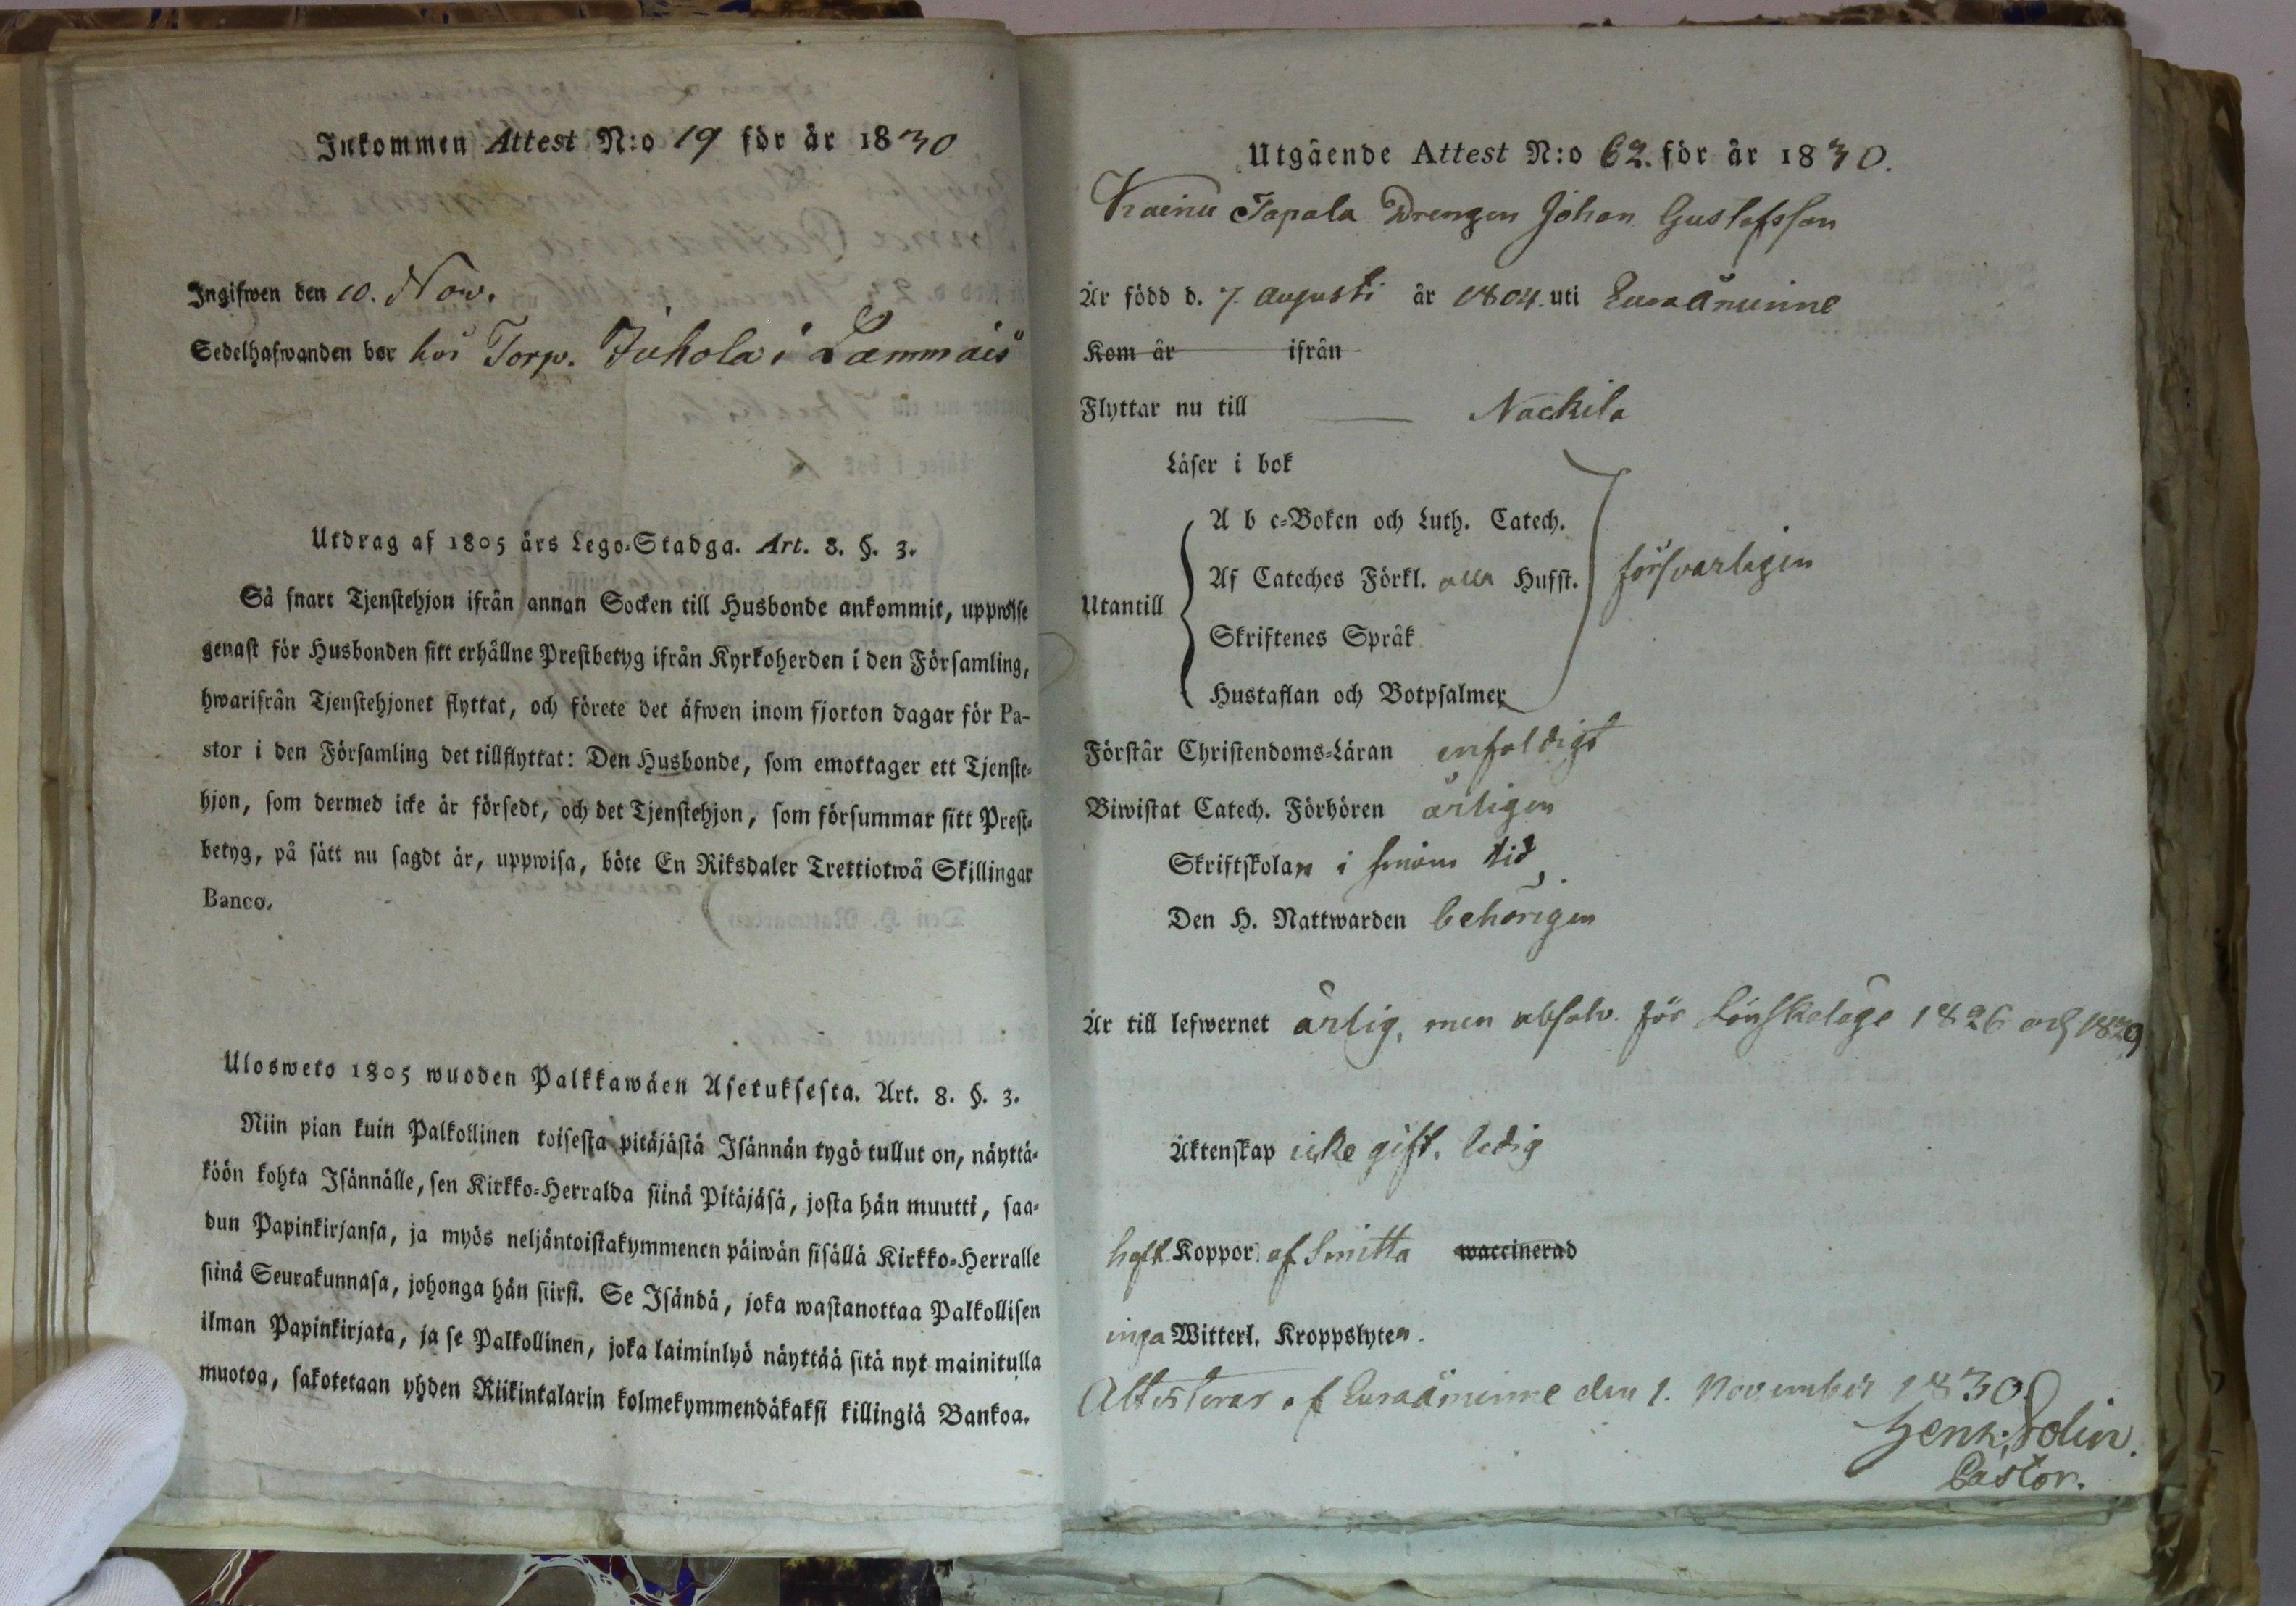 Inkommen Attest N:o 19 för år 1830
Ingifwen den 10. Now.
Sedelhafwanden bor hos Torp. Juhola i Lammais
Utdrag af 1805 års Lego-Stadga. Art. 8. §. 3.
Så snart Tjenstehjon ifrån annan Socken till Husbonde ankommit, uppwise
genast för Husbonden sitt erhållne Prestbetyg ifrån Kyrkoherden i den Församling,
hwarifrån Tjenstehjonet flyttat, och förete det äfwen inom fjorton dagar för Pa-
stor i den Församling det tillflyttat: Den Husbonde, som emottager ett Tjenste-
hjon, som dermed icke är försedt, och det Tjenstehjon, som försummar sitt Prest-
betyg, på sätt nu sagdt är, uppwisa, böte En Riksdaler Trettiotwå Skillingar
Banco.
Ulosweto 1805 wuoden Palkkawäen Asetuksesta. Art. 8. §. 3.
Niin pian kuin Palkollinen toisesta pitäjästä Isännän tygö tullut on, näyttä-
köön kohta Isännälle, sen Kirkko-Herralda siinä Pitäjäsä, josta hän muutti, saa-
dun Papinkirjansa, ja myös neljäntoistakymmenen päiwän sisällä Kirkko-Herralle
siinä Seurakunnasa, johonga hän siirsi. Se Isändä, joka wastanottaa Palkollisen
ilman Papinkirjata, ja se Palkollinen, joka laiminlyö näyttää sitä nyt mainitulla
muotoa, sakotetaan yhden Riikintalarin kolmekymmendäkaksi killingiä Bankoa.
Utgående Attest N:o 62. för år 1830.
Trainu Tapala Drengen Johan Gustafsson
Är född d. 7 augusti år 1804. uti Euraåminne
Kom år ifrån
Flyttar nu till Nackila
Läser i bok
A b c-Boken och Luth. Catech.
Af Cateches Förkl. alla Husst. försvarligen
Utantill
Skriftenes Språk
Hustaflan och Botpsalmer
Förstår Christendoms-Läran enfaldigt
Biwistat Catech. Förhören årligen
Skriftskolan i sinom tid,
Den H. Nattwarden behörigen
Är till lefwernet ärlig, men absolv. för Lönskaläge 1826 och 1829
Äktenskap icke gift. ledig
haft Koppor af Smitta waccinerad
inga Witterl. Kroppslyten.
Attesterar af Euraåminne den 1. November 1830
Henr. Polin.
Pastor.